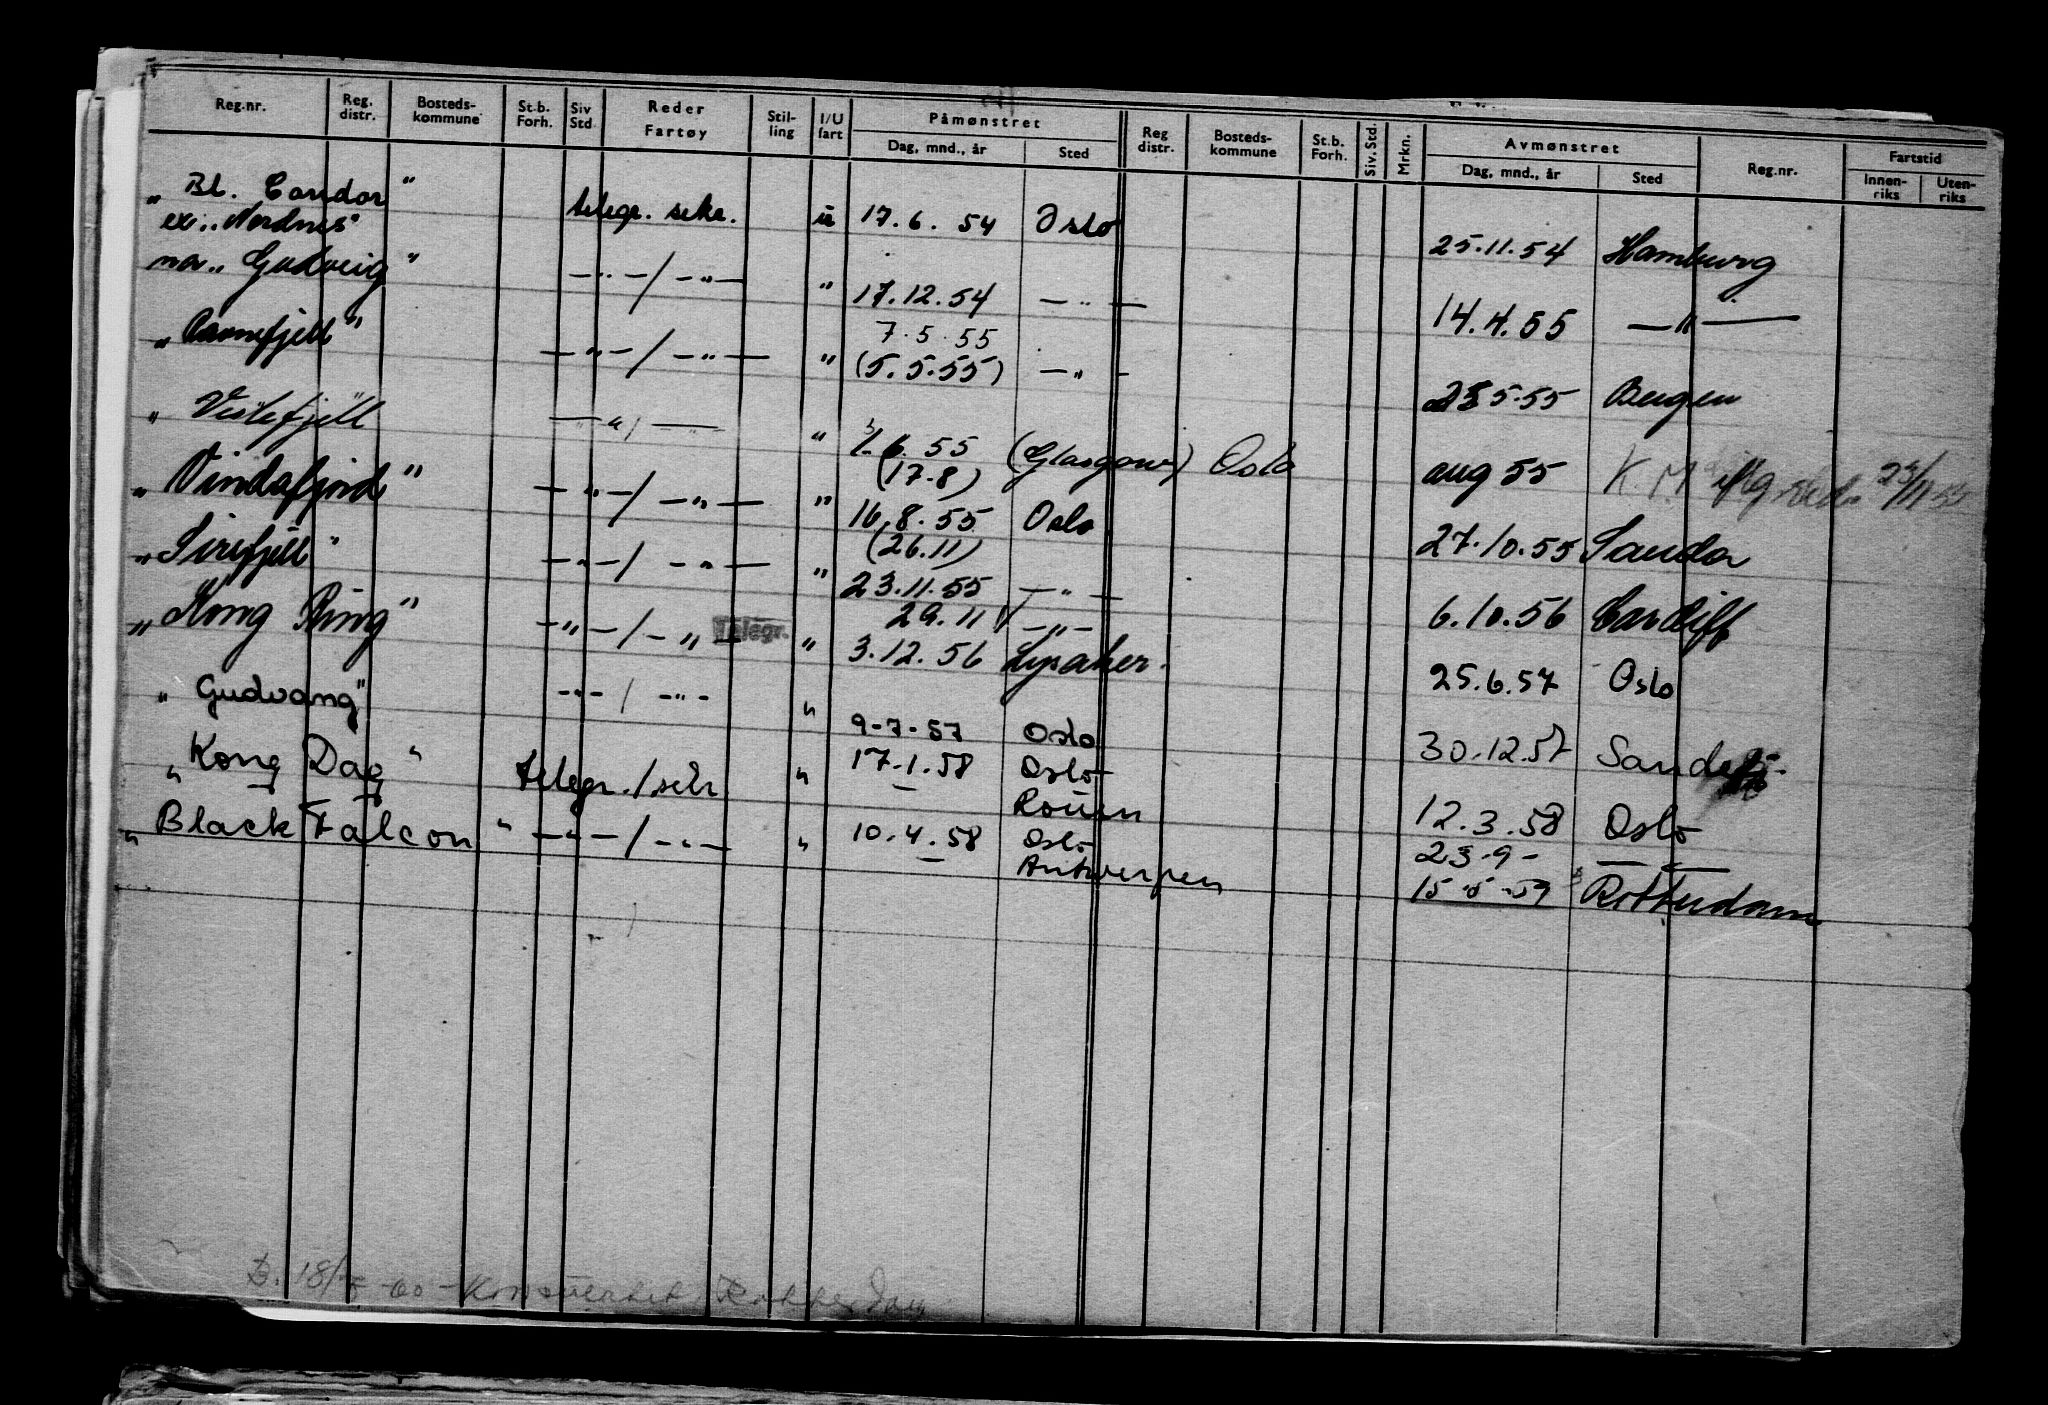 Reg.nr. Reg. distr. Bosteds-kommune St.b. Forh. Siv Std Reder Fartøy Stil-ling I/U fart Påmønstret Dag, mnd., år Sted Reg distr. Bosteds-kommune St.b. Forh. Siv. Std. Mrkn. Avmønstret Dag, mnd., år Sted Reg.nr. Fartstid Innen-riks Uten-riks
„ Bl. Condor " telegr. sekr. u 17.6. 54 Oslo 25.11.54 Hamburg
ex „ Nordnes"
na „ Gudveig " — " — / — " — " 17.12.54 — " — 14.4.55 — " —
7.5.55
„ Ravnefjell" — " — / — " — " (5.5.55) — " — 5.55 Bergen
„ Vestefjell — " / — " 6.55 (Glasgow) Oslo aug 55 K.M 23/11 55
(17-8)
„ Vindafjord " — " — / — " — " 16.8.55 Oslo 27.10.55 Sandar
(26.11)
„ Sirefjell " — " — / — " — " 23.11.55 — " — 6.10.56 Cardiff
29.11 — " —
„ Kong Ring " — " — / — " — Telegr. " 3.12.56 Lysaker. 25.6.57 Oslo
„ Gudvang" - " - / - " - " 9-7-57 Oslo 30.12.57
„ Kong Dag " telegr. / sekr " 17-1.58 Oslo 12.3.58 Oslo
Rouen
„ Black Falcon " — " — / — " — " 10.4.58 Oslo 23-9- —
Antwerpen 15-5-59 Rotterdam
D. 18/ -60 - Konsulatet Rotterdam